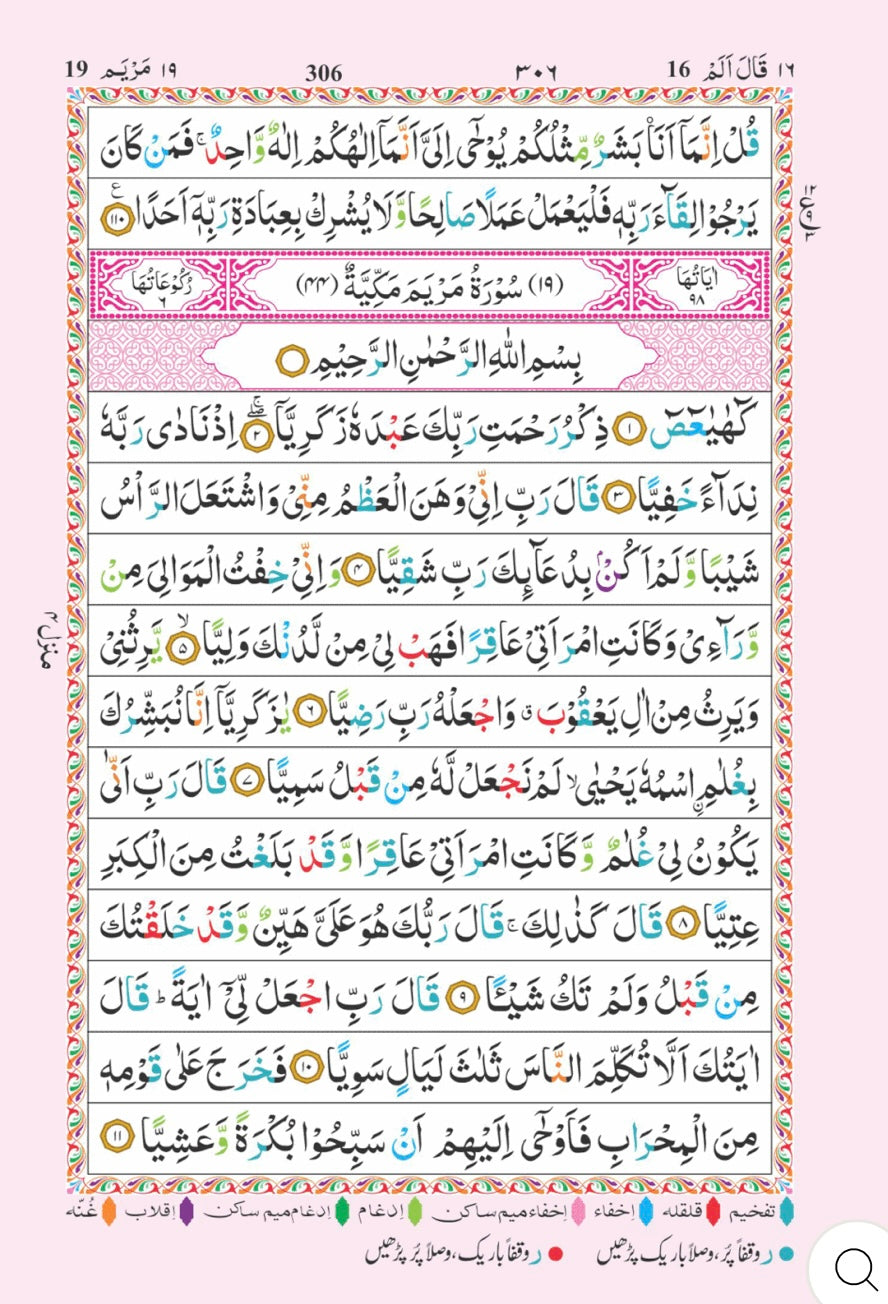 ١٦ قَالَ اَلَمْ 16 ٣٠٦ 306 ١٩ مَرْیَم 19
قُلْ اِنَّمَاۤ اَنَا۠ بَشَرٌ مِّثْلُكُمْ یُوْحٰۤى اِلَیَّ اَنَّمَاۤ اِلٰهُكُمْ اِلٰهٌ وَّاحِدٌ ۚ فَمَنْ كَانَ
یَرْجُوْا لِقَآءَ رَبِّهٖ فَلْیَعْمَلْ عَمَلًا صَالِحًا وَّلَا یُشْرِكْ بِعِبَادَةِ رَبِّهٖۤ اَحَدًا ١١٠
ع ١٢ ٩ ٣
اٰیَاتُهَا ٩٨ (١٩) سُوْرَةُ مَرْیَمَ مَكِّیَّةٌ (٤٤) رُكُوْعَاتُهَا ٦
بِسْمِ اللّٰهِ الرَّحْمٰنِ الرَّحِیْمِ
كٓهٰیٰعٓصٓ ١ ذِكْرُ رَحْمَتِ رَبِّكَ عَبْدَهٗ زَكَرِیَّا ۖۚ ٢ اِذْ نَادٰى رَبَّهٗ
نِدَآءً خَفِیًّا ٣ قَالَ رَبِّ اِنِّیْ وَهَنَ الْعَظْمُ مِنِّیْ وَاشْتَعَلَ الرَّاْسُ
شَیْبًا وَّلَمْ اَكُنْۢ بِدُعَآىِٕكَ رَبِّ شَقِیًّا ٤ وَاِنِّیْ خِفْتُ الْمَوَالِیَ مِنْ
وَّرَآءِیْ وَكَانَتِ امْرَاَتِیْ عَاقِرًا فَهَبْ لِیْ مِنْ لَّدُنْكَ وَلِیًّا ۙ ٥ یَّرِثُنِیْ
منزل ٤
وَیَرِثُ مِنْ اٰلِ یَعْقُوْبَ ۖۗ وَاجْعَلْهُ رَبِّ رَضِیًّا ٦ یٰزَكَرِیَّاۤ اِنَّا نُبَشِّرُكَ
بِغُلٰمِ ِ۟اسْمُهٗ یَحْیٰى ۙ لَمْ نَجْعَلْ لَّهٗ مِنْ قَبْلُ سَمِیًّا ٧ قَالَ رَبِّ اَنّٰى
یَكُوْنُ لِیْ غُلٰمٌ وَّكَانَتِ امْرَاَتِیْ عَاقِرًا وَّقَدْ بَلَغْتُ مِنَ الْكِبَرِ
عِتِیًّا ٨ قَالَ كَذٰلِكَ ۚ قَالَ رَبُّكَ هُوَ عَلَیَّ هَیِّنٌ وَّقَدْ خَلَقْتُكَ
مِنْ قَبْلُ وَلَمْ تَكُ شَیْـًٔا ٩ قَالَ رَبِّ اجْعَلْ لِّیْۤ اٰیَةً ؕ قَالَ
اٰیَتُكَ اَلَّا تُكَلِّمَ النَّاسَ ثَلٰثَ لَیَالٍ سَوِیًّا ١٠ فَخَرَجَ عَلٰى قَوْمِهٖ
مِنَ الْمِحْرَابِ فَاَوْحٰۤى اِلَیْهِمْ اَنْ سَبِّحُوْا بُكْرَةً وَّعَشِیًّا ١١
تفخیم قلقله اِخفاء اِخفاءمیم ساکن اِدغام اِدغام‌میم ساکن اِقلاب غُنّه
ر وقفاً پُر، وصلاً باریک پڑھیں ر وقفاً باریک، وصلاً پُر پڑھیں